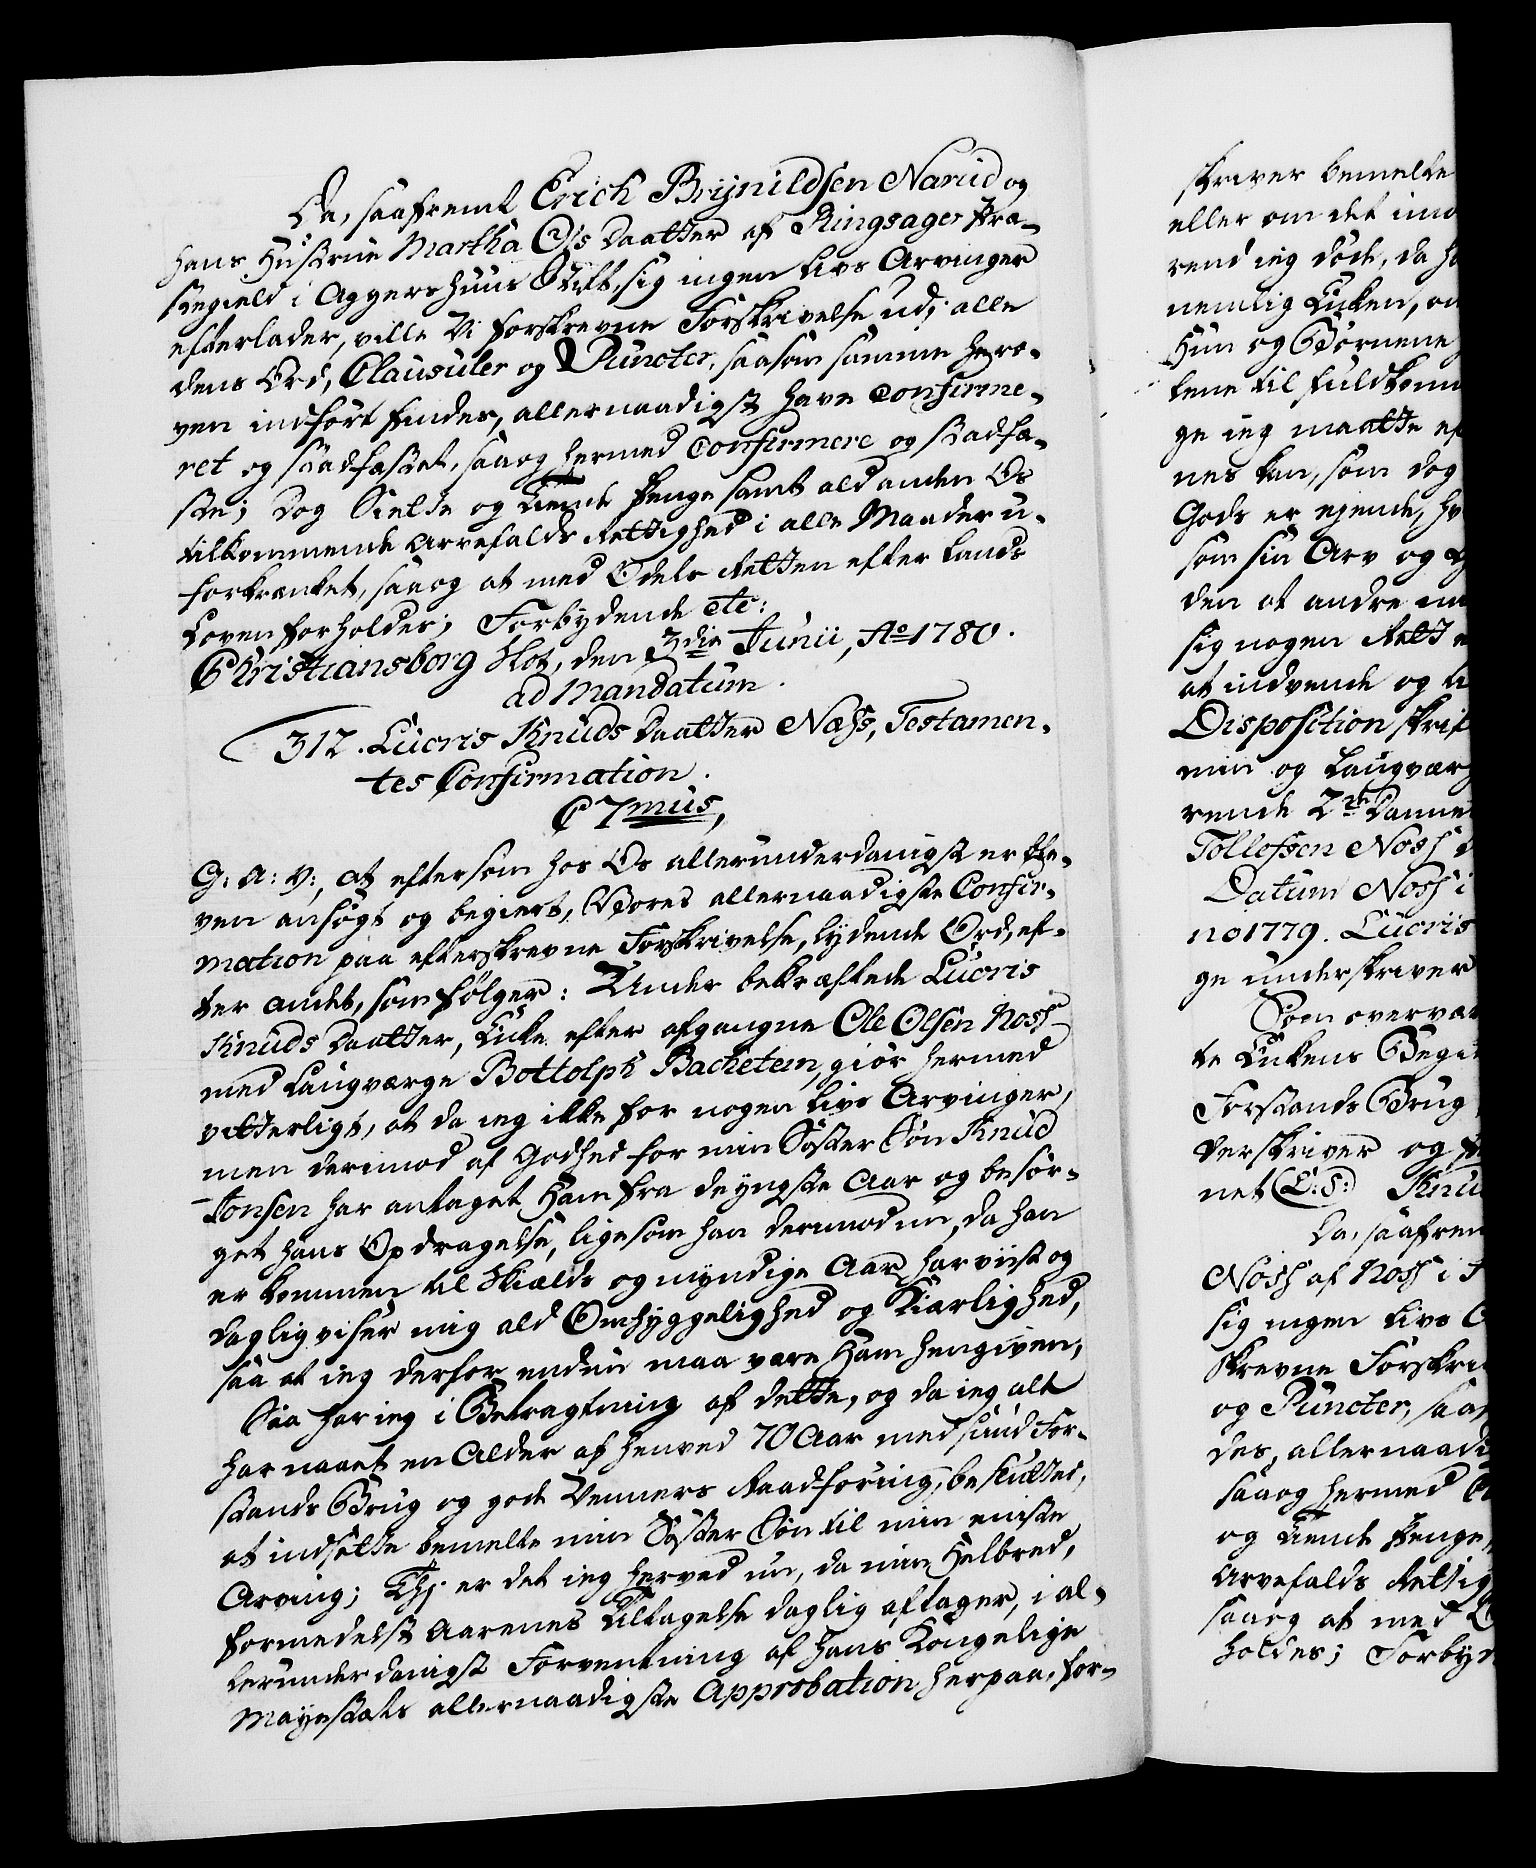 Da, saafremt Erich Brynildsen Narud og
hans Hustrue Martha Ols Daatter af Ringsager Præ-
stegield i Aggershuus Stift, sig ingen Livs Arvinger
efterlader, ville Vi forskrevne Forskrivelse udi alle
dens Ord, Clausuler og Puncter, saasom samme hero-
ven indført findes, allernaadigst have confirme-
ret og stadfæstet, saa og hermed Confirmere og stadfæ-
ste; Dog Siette og Tiende Penge samt ald anden Os
tilkommende Arvefalds Rettighed i alle Maader u-
forkrænket, saa og at med Odels Retten efter Lands
Loven forholdes; Forbydende etc:
Christiansborg Slot, den 3die Junii, Ao 1780.
ad Mandatum.
312. Lucris Knuds Daatter Næss, Testamen-
tes Confirmation.
C 7mus,
G: A: V:, at eftersom hos Os allerunderdanigst er ble-
ven ansøgt og begiert, Vores allernaadigste Confir-
mation paa efterskrevne Forskrivelse, lydende Ord ef-
ter andet, som følger: Under bekræftede Lucris
Knuds Daatter, Enke efter afgangne Ole Olsen Noss
med Laugværge Bottolph Bachetem, giør hermed
vitterligt, at da ieg ikke har nogen Livs Arvinger,
men derimod af Godhed for min Søster Søn Knud
Jonsen har antaget Ham fra de yngste Aar og besør-
get hans Opdragelse, ligesom han derimod nu, da han
er kommen til Skiæls og myndige Aar, har viist og
daglig viser mig ald Omhyggelighed og Kiærlighed,
saa at ieg derfor endnu maa være Ham hengiven,
Saa har ieg i Betragtning af dette, og da ieg alt
har naaet en Alder af henved 70 Aar med sund For-
stands Brug og gode Venners Raadføring, besluttet,
at indsætte bemelte min Søster Søn til min eniste
Arving; Thi er det ieg herved nu, da min Helbred,
formedelst Aarenes Tiltagelse daglig aftager, i al-
lerunderdanigst Forventning af Hans Kongelige
Mayestæts allernaadigste Approbation herpaa, for-
skriver bemelte
eller om det imo
rend ieg døde, da ha
nemlig Enken, on
Hun og Børnene
tene til fuldkomm
ge ieg maatte ef
nes kan, som dog
Gods er ejende, hv
som sin Arv og
den at andre mu
sig nogen Rett e
at indvende og
Disposition skrif
min og Laugvær
rende 2de Danne
Tollefsen Noss
Datum Noss i
no 1779. Lucris
ge underskriver
Som overvær
te Enkens Begi
Forstands Brug
derskriver og
net (L:S:) Knu
Da, saafrem
Noss af Noss i
sig ingen Livs
skrevne Forskri
og Puncter, saa
des, allernaadi
saa og hermed
og Tiende Penge,
Arvefalds Rettig
saa og at med
holdes; Forbyd